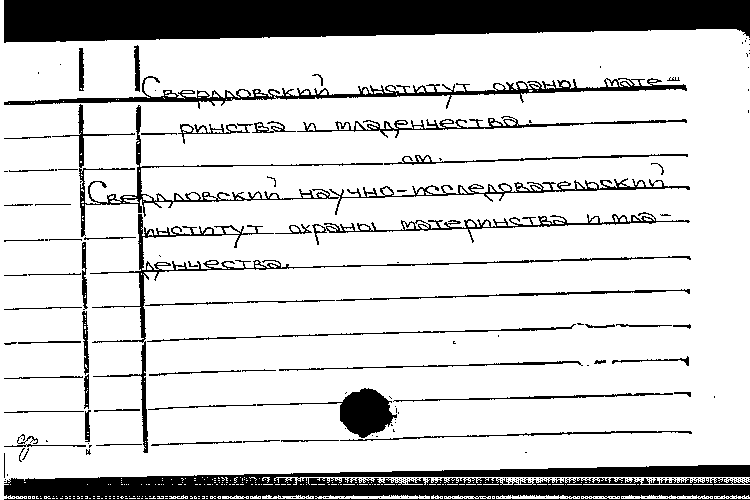 Свердловский институт охраны мате-
ринства и младенчества.
см.
Свердловский научно-исследовательский
институт охраны материнства и мла-
денчества.